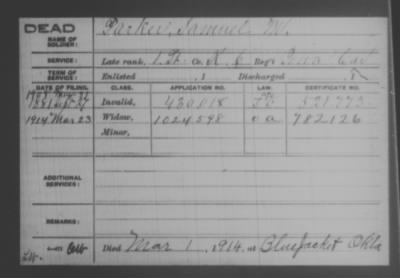 DEAD
NAME OF SOLDIER: Parker, Samuel W.
SERVICE: Late rank, 1. Lt. Co. K, 6 Reg't Cav
TERM OF SERVICE: Enlisted , 1 Discharged , 1
DATE OF FILING. CLASS. APPLICATION NO. LAW. CERTIFICATE NO.
Invalid, 430,018
1914 Mar 23 Widow, 1024598 782,126
Minor,
ADDITIONAL SERVICES:
REMARKS:
Died Mar 1, 1914, at Bluejacket Okla